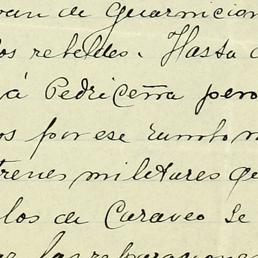 van de Guarnicion
los rebeldes. Hasta
á Pedriceña pero
os por ese rumbo
trenes militares
los de Caraveo se
las reparaciones